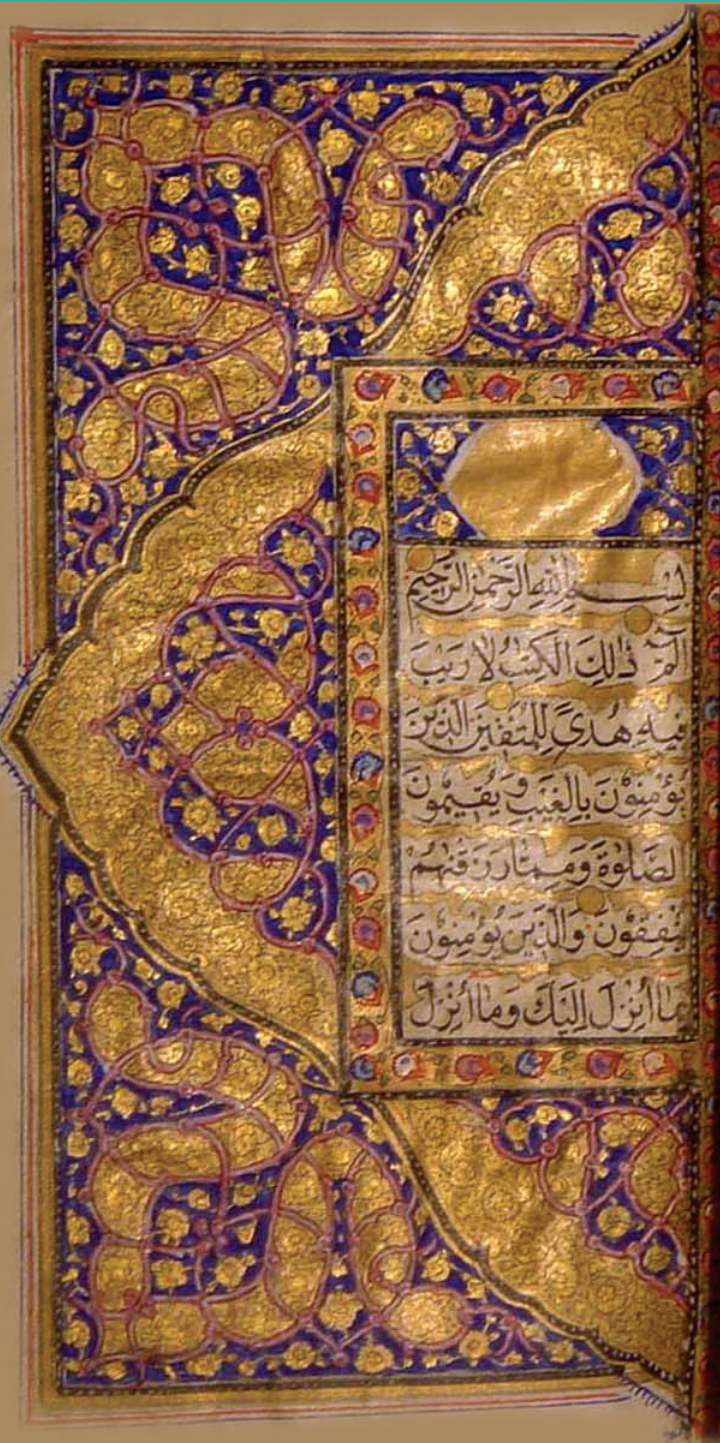 بِسْمِ اللهِ الرَّحْمٰنِ الرَّحِيْمِ
الٓمّٓ ذٰلِكَ الْكِتٰبُ لَا رَيْبَ
فِيْهِ هُدًى لِلْمُتَّقِيْنَ الَّذِيْنَ
يُؤْمِنُوْنَ بِالْغَيْبِ وَيُقِيْمُوْنَ
الصَّلٰوةَ وَمِمَّا رَزَقْنٰهُمْ
يُنْفِقُوْنَ وَالَّذِيْنَ يُؤْمِنُوْنَ
بِمَا أُنْزِلَ إِلَيْكَ وَمَا أُنْزِلَ